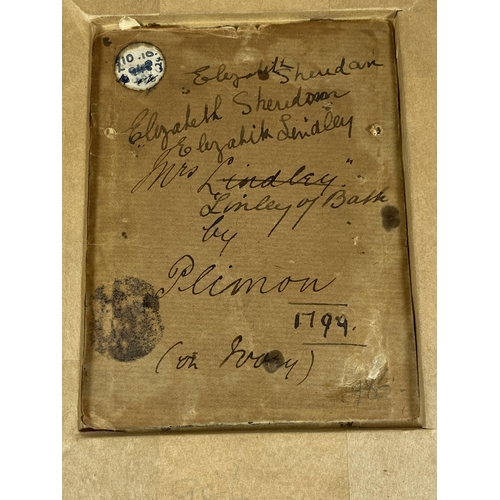 £10.10.
"Elizabeth Sheridan
Elizabeth Sheridan
Elizabeth Lindley
Mrs Lindley"
Linley of Bath
by
Plimon
1794.
(on Ivory)